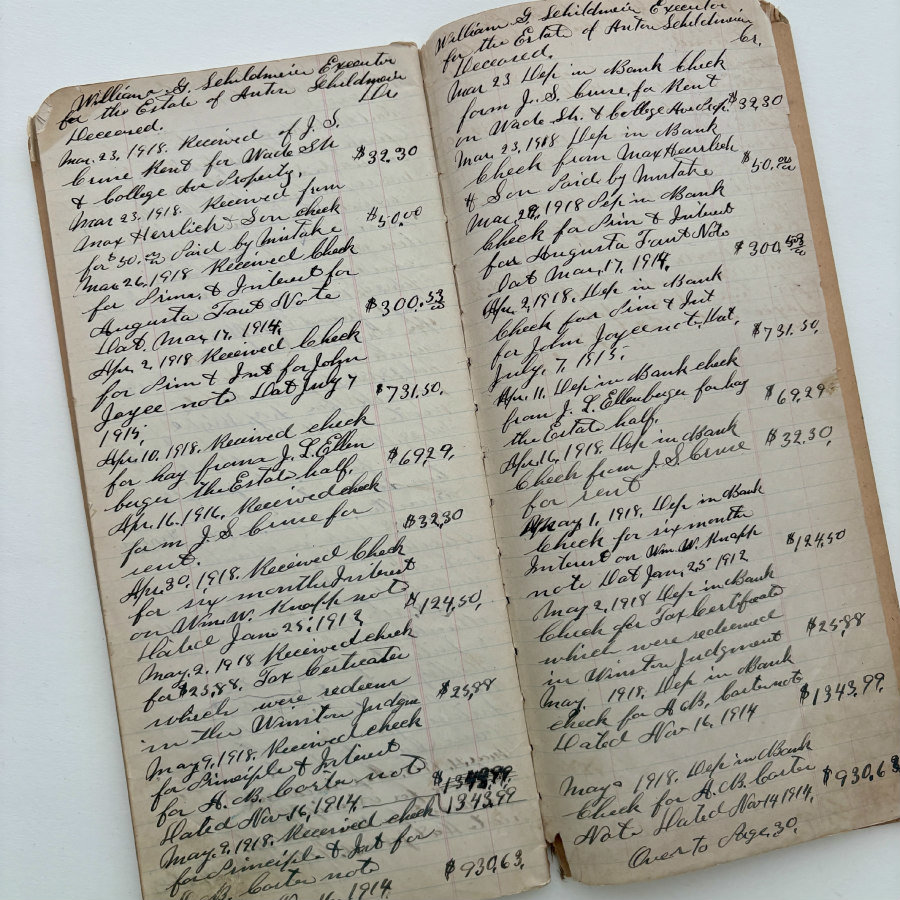 William G. Schildmeier Executor
for the Estate of Anton Schildmeier
Deceased. Dr
Mar. 23, 1918. Received of J. S.
Cruse Rent for Wade Str $32.30
& College Ave Property.
Mar 23, 1918. Received from
Max Herrlich & Son check $50.00
for $50.00 Paid by Mistake
Mar 26, 1918 Received Check
for Prins. & Interest for
Augusta Taut Note $300.53
Dat Mar, 17, 1914.
Apr. 2, 1918 Received Check
for Prin & Int for John
Joyce note Dat July 7 $731.50.
1915,
Apr. 10, 1918. Received check
for hay from a J. L. Ellen
berger the Estate half. $69.29.
Apr. 16. 1916. Received check
form J. S. Cruse for $32,30
rent.
Apr. 30, 1918. Received Check
for six months Interest
on Wm W. Knapp not
Dated Jan 25, 1912 $124,50.
May. 2, 1918 Received check
for $25,88. Tax Certicates
which were redeem $25,88
in the Winston Judgm
May 9, 1918. Received check
for Principle & Interest
for A. B. Carter note $1343,99
Dated Nov 16, 1914 1343,99
May, 9, 1918. Received check
for Principle & Int for
B. Carter note $930,63.
1914.
William G. Schildmeier Executor
for the Estate of Anton Schildmeier
Deceased. Cr.
Mar 23 Dep in Bank Check
form J. S. Cruse, for Rent
on Wade Str. & College Ave Prop. $32,30
Mar. 23, 1918 Dep in Bank
Check from Max Herrlich
& Son Paid by Mistake $50.00
Mar. 28, 1918 Dep in Bank
Check for Prin & Interest
for Augusta Taut Note $300.53
Dat Mar, 17, 1914.
Apr. 2, 1918. Dep in Bank
Check for Prin & Int
for John Joyce not, Dat. $731.50,
July, 7, 1915.
Apr. 11. Dep in Bank check
from J. L. Ellenberger for hay
the Estate half. $69,29
Apr. 16, 1918. Dep in Bank
Check from J. S. Cruse $32,30.
for rent
May 1, 1918, Dep in Bank
Check for six months
Interest on Wm W. Knapp
note Dat Jan, 25" 1912 $124,50
May 2, 1918 Dep in Bank
Check for Tax Certificate
which were redeemed
in Winston Judgment $25,88
May, 1918. Dep in Bank
check for A. B. Carter note
Dated Nov 16, 1914 $1343,99.
May 1918. Dep in Bank
Check for A. B. Carter
Note Dated Nov 14 1914, $930,63
Over to Page, 30,